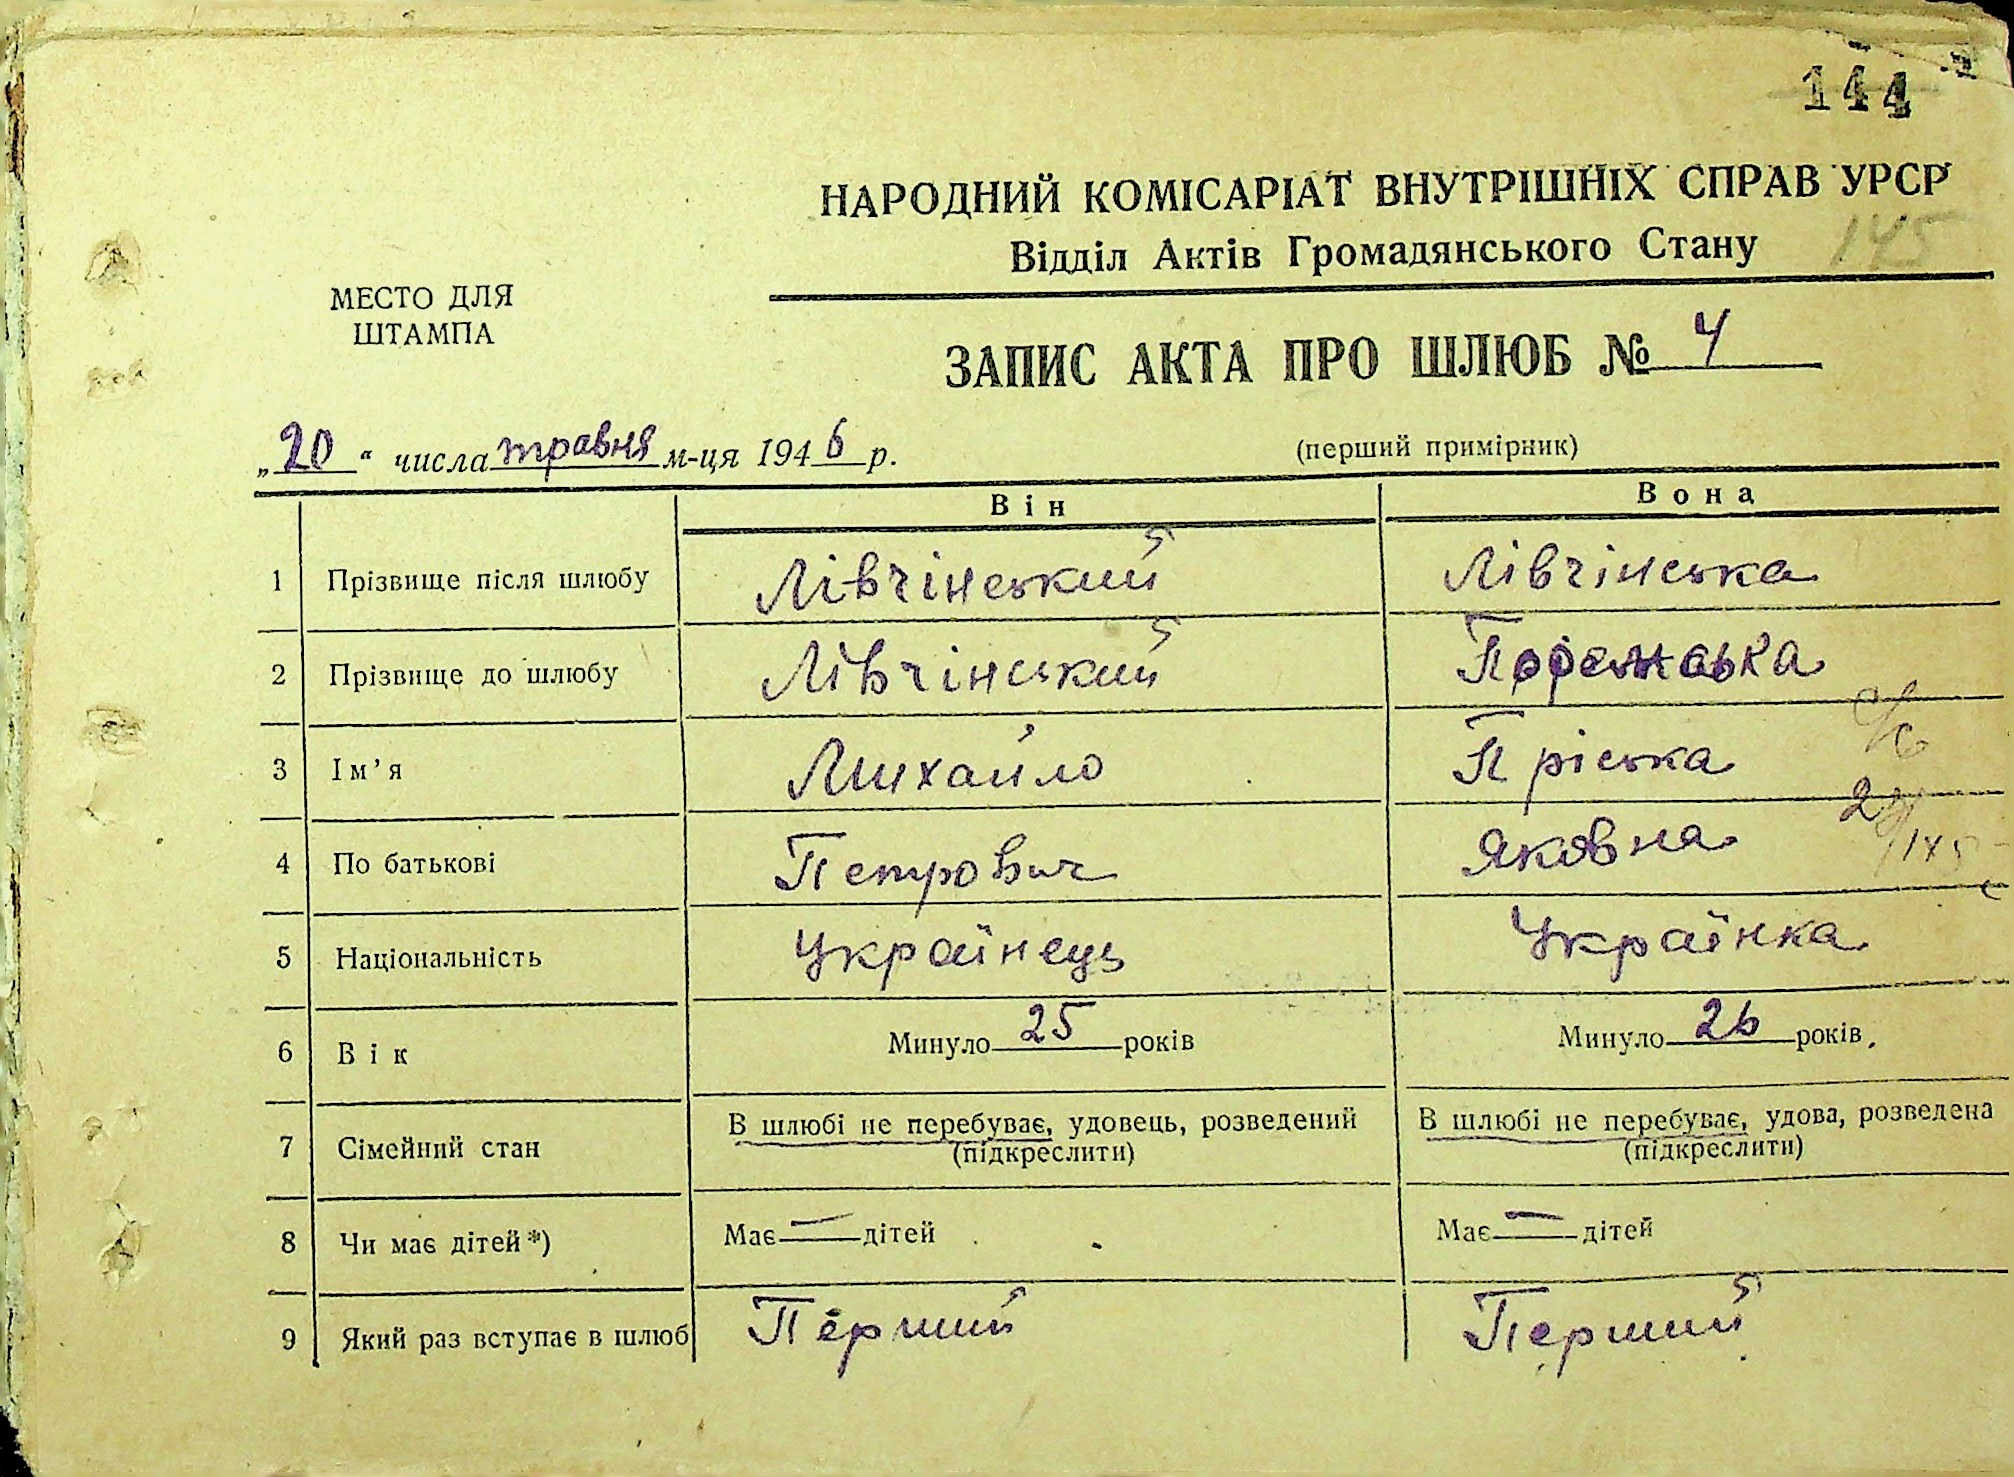 144
НАРОДНИЙ КОМІСАРІАТ ВНУТРІШНІХ СПРАВ УРСР
Відділ Актів Громадянського Стану 145
МЕСТО ДЛЯ
ШТАМПА
ЗАПИС АКТА ПРО ШЛЮБ № 4
„20“ числа травня м-ця 1946 р. (перший примірник)
Він Вона
1 Прізвище після шлюбу Лівчінський Лівчінська
2 Прізвище до шлюбу Лівчінський
3 Ім’я Михайло Пріська
4 По батькові Петрович Яковна
145
5 Національність Українець Українка
6 Вік Минуло 25 років Минуло 26 років.
7 Сімейний стан В шлюбі не перебуває, удовець, розведений (підкреслити) В шлюбі не перебуває, удова, розведена (підкреслити)
8 Чи має дітей*) Має — дітей Має — дітей
9 Який раз вступає в шлюб Перший Перший